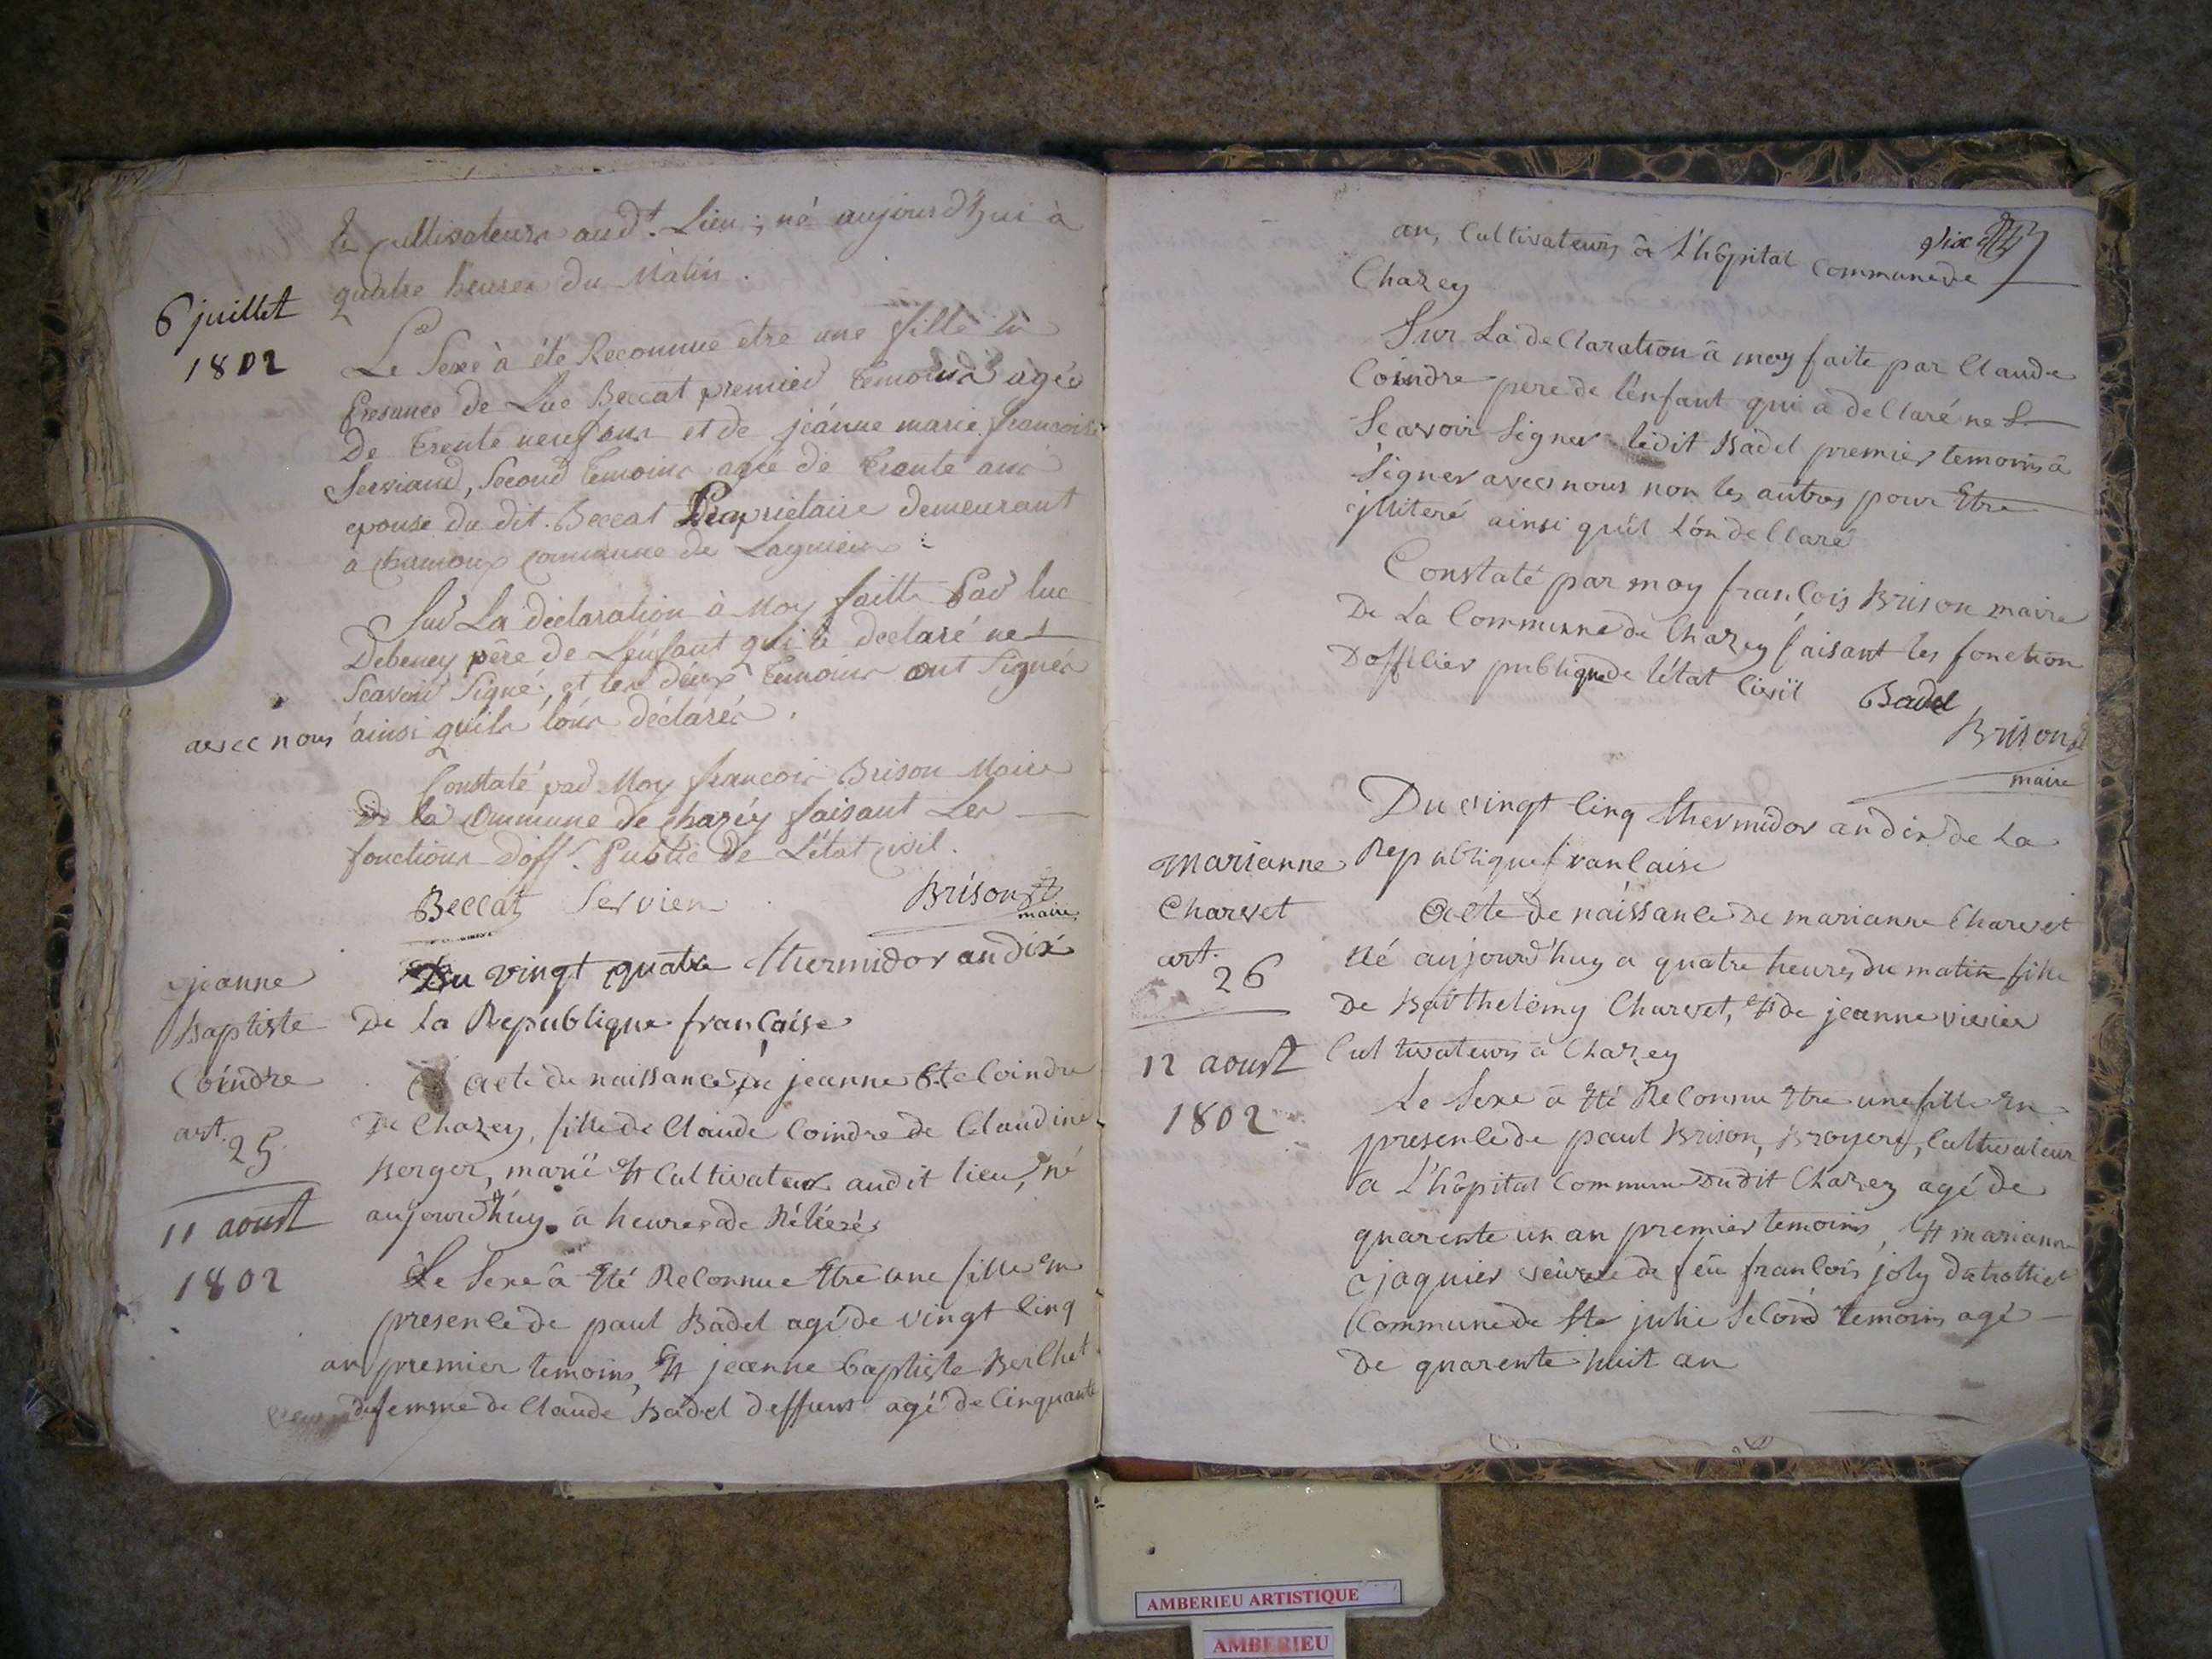 & cultivateurs aud.t Lieu; né aujourd'hui à
quatre heures du Matin.
6 juillet
1802
Le Sexe à été Reconnue etre une fille en
presance de Luc Beccat premier temoins agée
De trente neuf ans et de jeanne marie francoise
Serviand, Second temoins agée de trante ans
epouse du dit. Beccat Propriétaire demeurant
à Chamoux commune de Lagnieu.
Sur La déclaration à Moy faitte Par luc
Debeney père de L'énfant qui à déclaré ne
Scavoir Signé, et les deux temoins ont Signés
avec nous ainsi quils lons déclarés.
Constaté par Moy francois Brison Maire
De la Commune de Chazéy faisant Les
fonctions d'off.r Public De L'état Civil.
Beccat Servien Brison
maire
Du vingt quatre thermidor an dix
De la Republique française
jeanne
Baptiste
Coindre
art.
25
11 aoust
1802
acte de naissance de jeanne B.te Coindre
De Chazey, fille de Claude Coindre de Claudine
Berger, marié et Cultivateur audit lieu, né
aujourd'huy à heures de
Le Sexe â été Reconnue être une fille en
presence de paul Badel agé de vingt cinq
an premier temoins, et jeanne baptiste Berchet
femme de Claude Badel deffunt agé de Cinquante
dix
an, Cultivateurs â L'hôpital Commune de
Chazey
Sur La declaration â moy faite par Claude
Coindre pere de l'enfant qui a declaré ne S
Sçavoir Signer ledit Badel premier temoins â
Signer avec nous non les autres pour être
illiteré ainsi qu'il l'on declaré
Constaté par moy françois Brison maire
De La Commune de Chazey faisant les fonction
Dofficier publique de l'état Civil Badel
Brison
maire
Du vingt cinq thermidor an dix de la
Republique francaise
Marianne
Charvet
art.
26
12 aoust
1802
Acte de naissance de marianne Charvet
Né aujourd'huy a quatre heures du matin fille
De Barthelemy Charvet, et de jeanne vivier
Cultivateurs â Chazey
Le Sexe â été Reconnue être une fille En
presence de paul Brison, Broyer, Cultivateur
a L'hôpital Commune Dudit Chazey agé de
quarente un an premier temoins, et marianne
jaquier veuve de feu francois joly de trottier
Commune de Ste julie Second temoins agé
De quarente huit an
AMBERIEU ARTISTIQUE
AMBERIEU